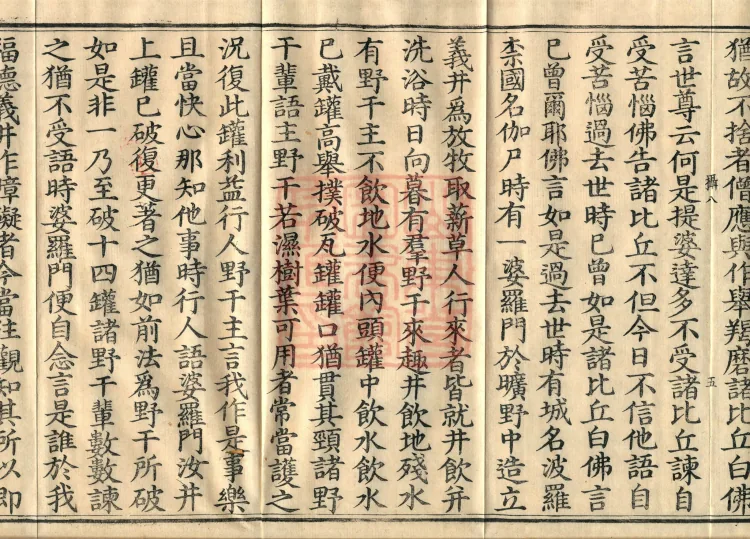 猶故不捨者僧應與作舉羯磨諸比丘白佛
攝八 五
言世尊云何是提婆達多不受諸比丘諫自
受苦惱佛告諸比丘不但今日不信他語自
受苦惱過去世時已曾如是諸比丘白佛言
已曾爾耶佛言如是過去世時有城名波羅
柰國名伽尸時有一婆羅門於曠野中造立
義井爲放牧取薪草人行來者皆就井飲并
洗浴時日向暮有羣野干來趣井飲地殘水
有野干主不飲地水便內頭罐中飲水飲水
已戴罐高舉撲破瓦罐罐口猶貫其頸諸野
干輩語主野干若濕樹葉可用者常當護之
況復此罐利益行人野干主言我作是事樂
且當快心那知他事時行人語婆羅門汝井
上罐已破復更著之猶如前法爲野干所破
如是非一乃至破十四罐諸野干輩數數諫
之猶不受語時婆羅門便自念言是誰於我
福德義井作障礙者今當往觀知其所以即